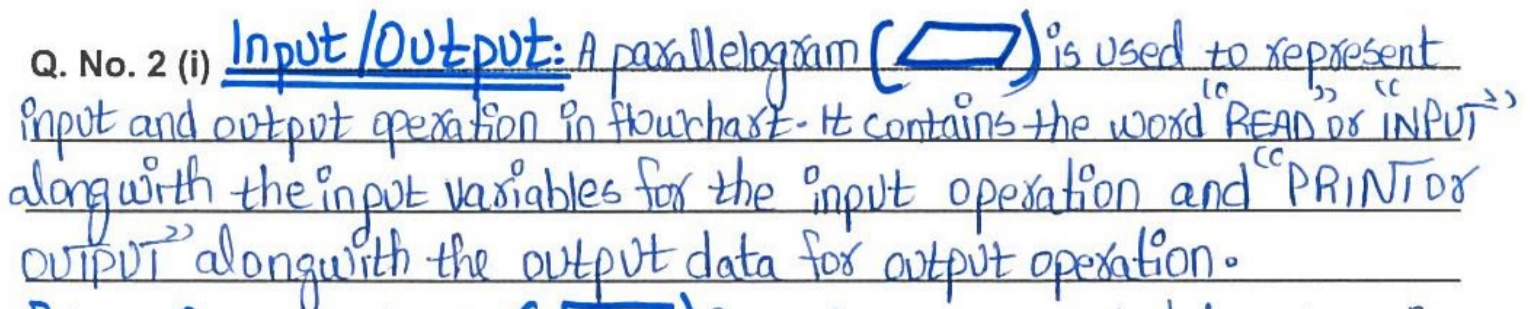 Q. No. 2 (i) Input/Output: A parallelogram (▱) is used to represent
input and output operation in flowchart. It contains the word "READ" or "INPUT"
alongwith the input variables for the input operation and "PRINT or
OUTPUT" alongwith the output data for output operation.